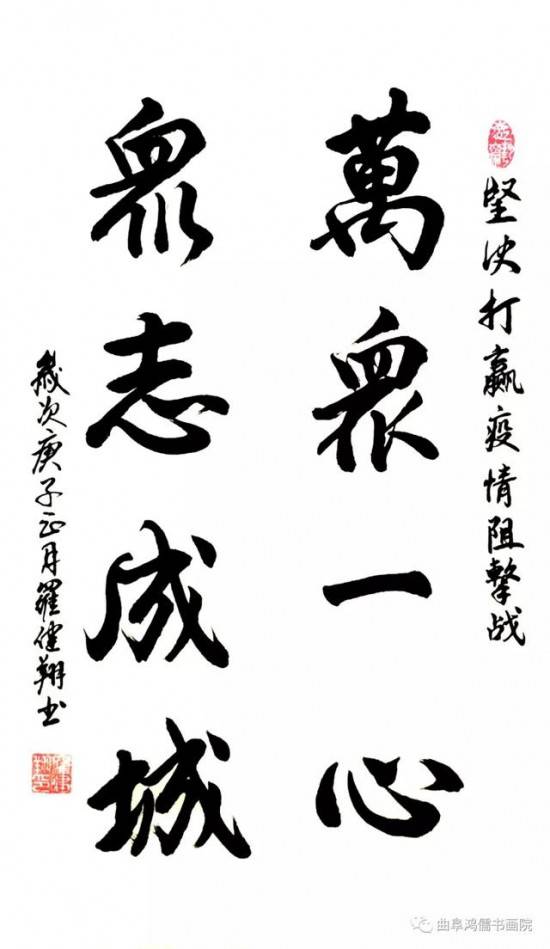 坚决打赢疫情阻击战
萬眾一心
眾志成城
歲次庚子正月羅健翔书
曲阜鸿儒书画院